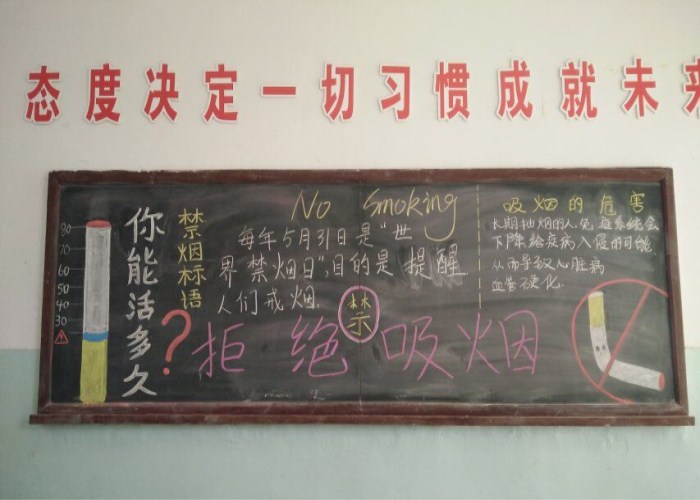 态度决定一切习惯成就未来
80
70
60
50
40
30
你能活多久
?
禁烟标语
No Smoking
每年5月31日是“世
界禁烟日”,目的是提醒
人们戒烟.
禁
拒绝吸烟
吸烟的危害
长期抽烟的人免疫系统会
下降给疾病入侵的可能.
从而导致心脏病
血管硬化.